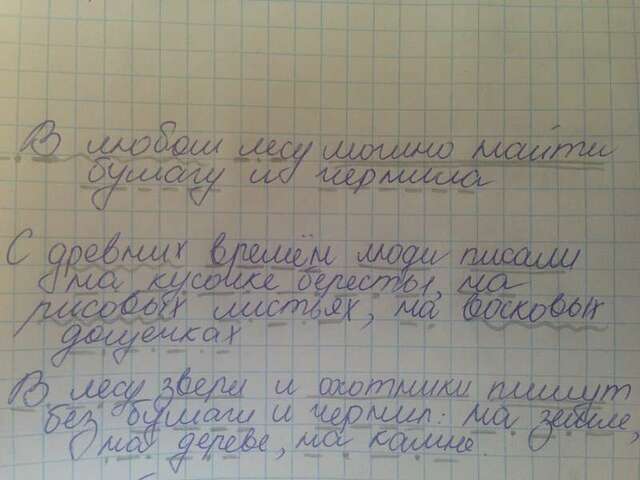 В любом лесу можно найти
бумагу и чернила
С древних времён люди писали
на кусочке бересты на
рисовых листьях, на восковых
дощечках
В лесу звери и охотники пишут
без бумаги и чернил: на земле,
на дереве, на камне